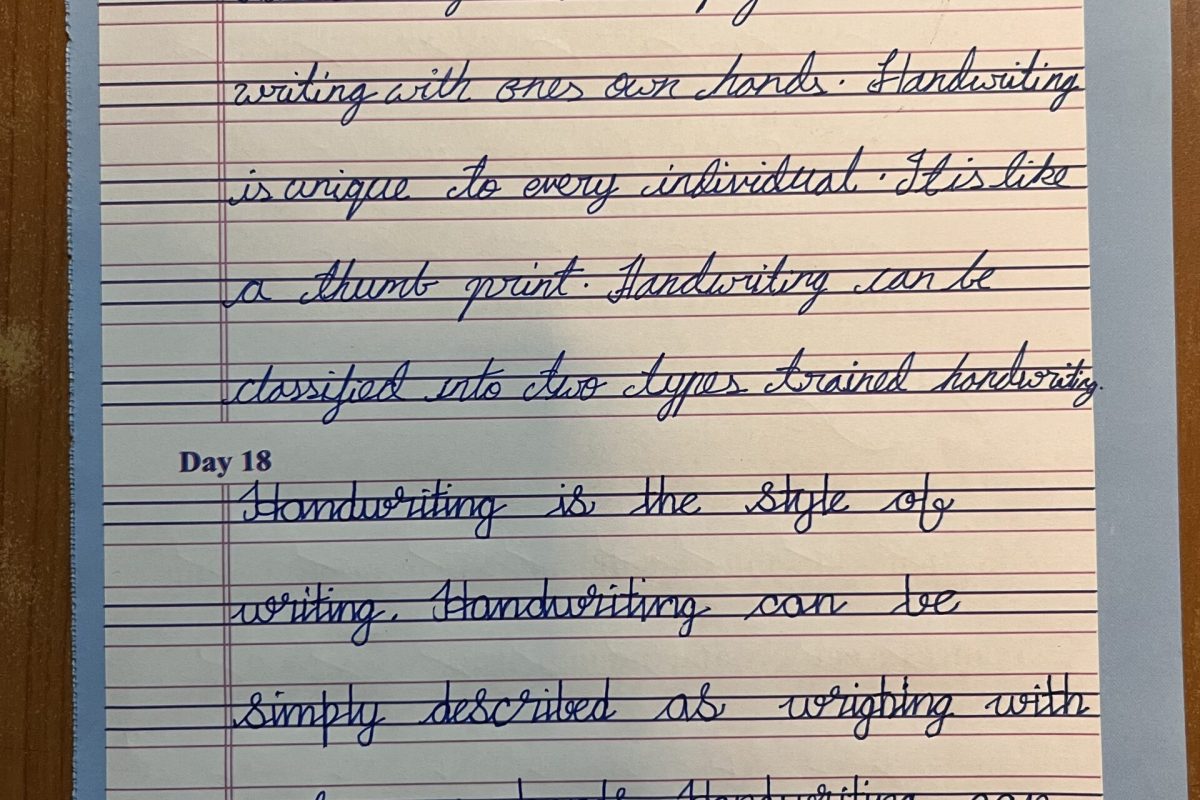 writing with ones own hands. Handwriting
is unique to every individual. It is like
a thumb print. Handwriting can be
classified into two types trained handwriting.
Day 18
Handwriting is the style of
writing. Handwriting can be
simply described as wrighting with
Handwriting